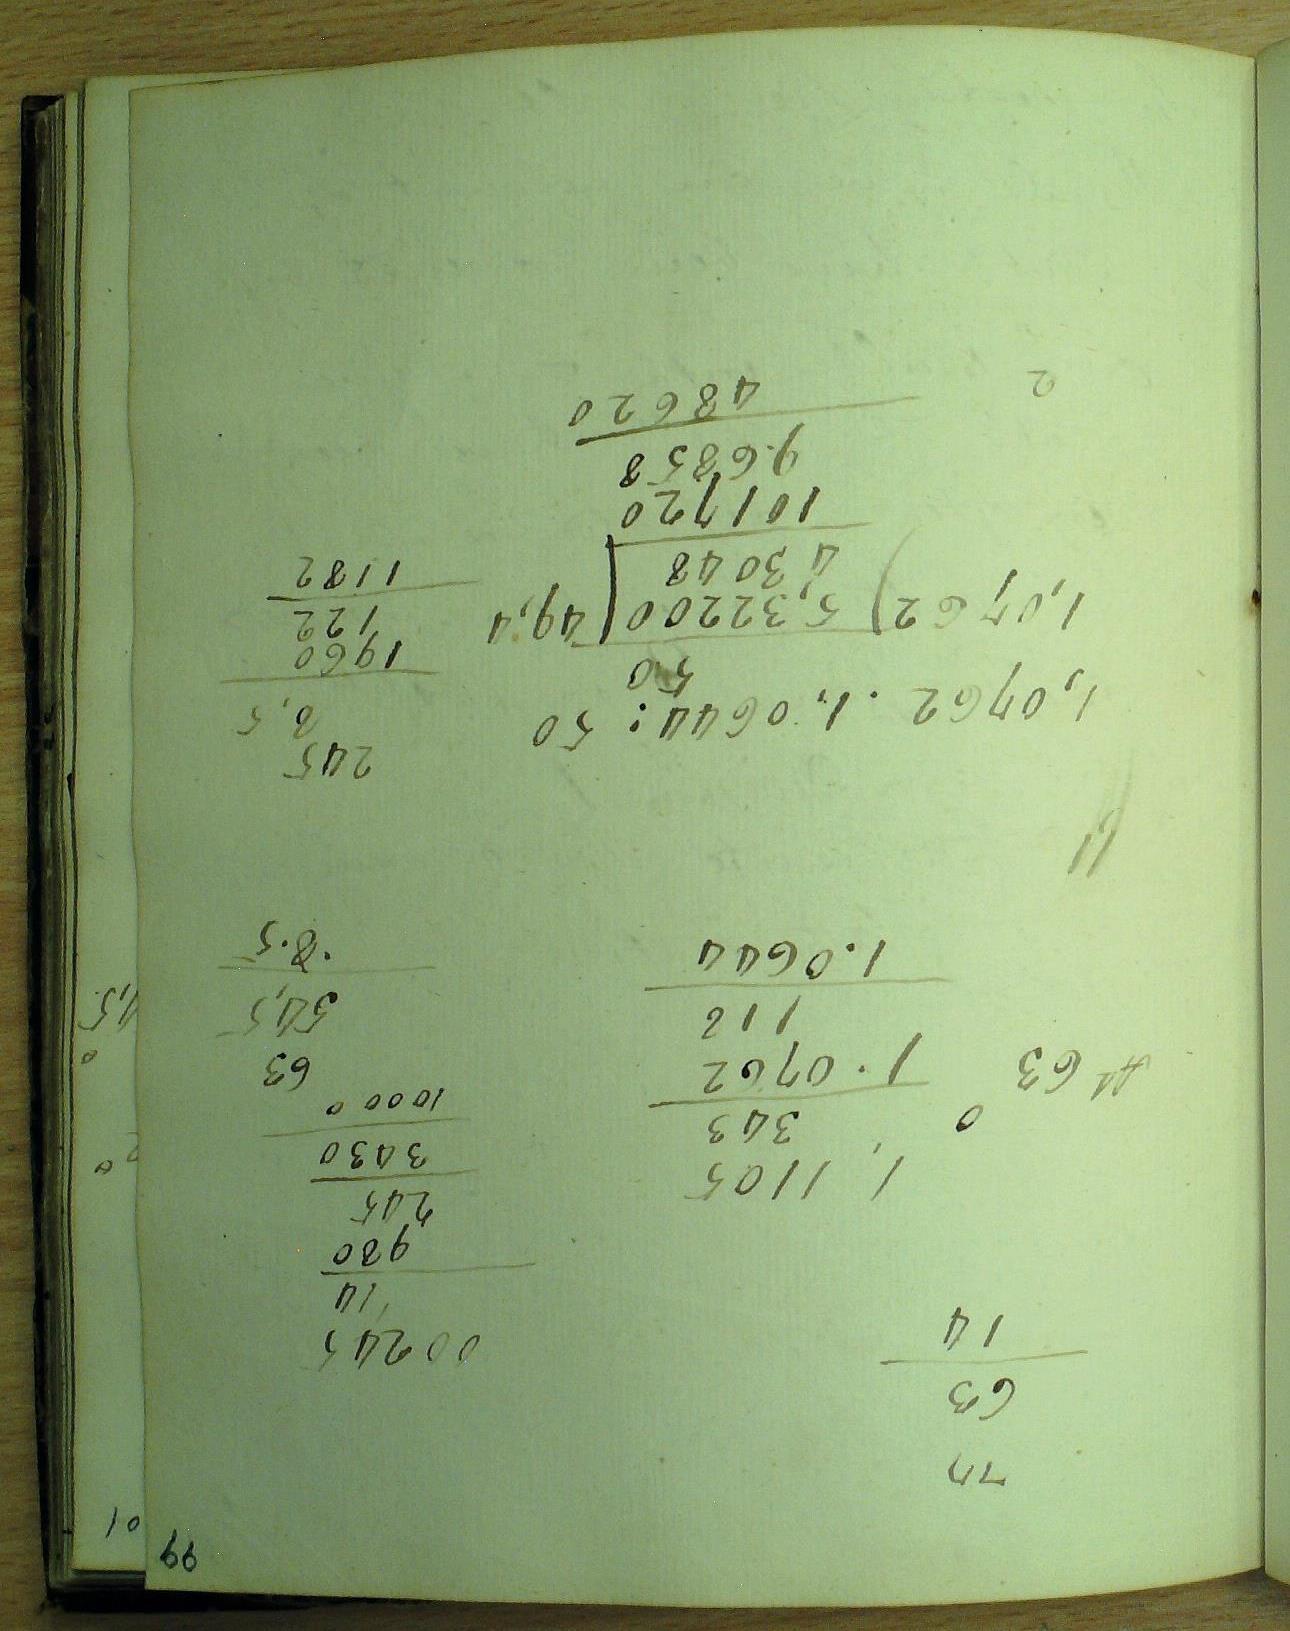 66
77
63
14
00245
14
980
245
3430
10000
1,1105
343
0
1.0762
At 63
118
1.0644
63
54,5
.8.5
245
8,5
1960
122
1182
1,0762 . 1,0644 : 50
50
1,0762) 5,32200 49,4
43048
101720
9.6858
48620
2